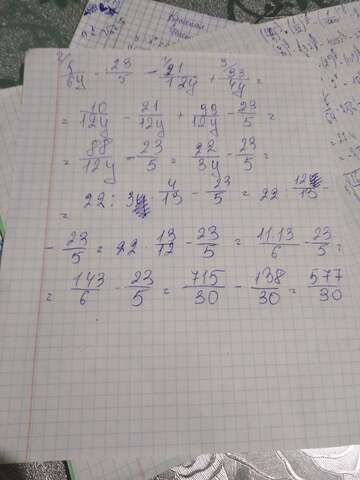 5/6y - 23/5 - 21/12y + 33/4y =
= 10/12y - 21/12y + 99/12y - 23/5 =
= 88/12y - 23/5 = 22/3y - 23/5 =
= 22 : 3 · 4/13 - 23/5 = 22 · 12/13 -
- 23/5 = 22 · 13/12 - 23/5 = 11·13/6 - 23/5 =
= 143/6 - 23/5 = 715/30 - 138/30 = 577/30